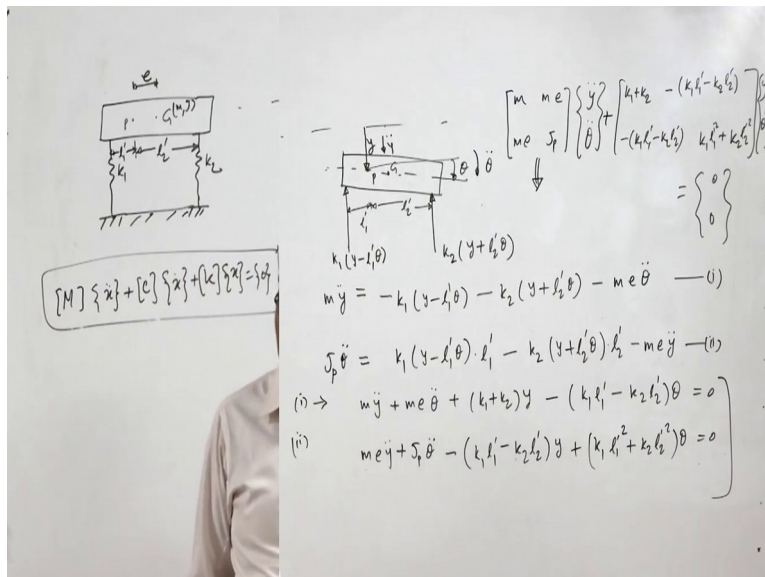 e
P G(m,J)
l₁' l₂'
k₁ k₂
[M]{ẍ}+[c]{ẋ}+[k]{x}={0}
y ÿ
P G θ θ̈
l₁' l₂'
k₁(y-l₁'θ) k₂(y+l₂'θ)
[m me; me J_p]{ÿ; θ̈}+[k₁+k₂ -(k₁l₁'-k₂l₂'); -(k₁l₁'-k₂l₂') k₁l₁'²+k₂l₂'²]
⇓
={0; 0}
mÿ = -k₁(y-l₁'θ) - k₂(y+l₂'θ) - meθ̈ —(i)
J_pθ̈ = k₁(y-l₁'θ)·l₁' - k₂(y+l₂'θ)·l₂' - meÿ —(ii)
(i) → mÿ + meθ̈ + (k₁+k₂)y - (k₁l₁'-k₂l₂')θ = 0
(ii) meÿ + J_pθ̈ - (k₁l₁'-k₂l₂')y + (k₁l₁'²+k₂l₂'²)θ = 0